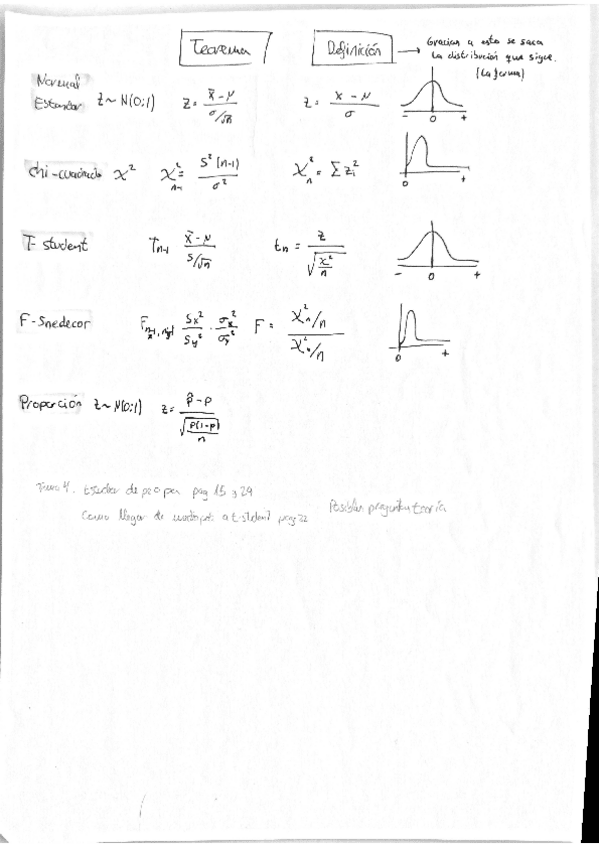 Teorema Definición → Gracias a esto se saca
la distribución que sigue.
(La forma)
Normal
Estandar Z ~ N(0;1) Z = (x̄ - μ) / (σ/√n) Z = (x - μ) / σ
- 0 +
chi-cuadrado χ² χ²ₙ₋₁ = S²(n-1) / σ² χ²ₙ = Σ Zᵢ²
0
T- student Tₙ₋₁ (x̄ - μ) / (S/√n) tₙ = Z / √(χ²/n)
- 0 +
F-Snedecor F Sx²/Sy² · F = (χ²ₙ/n) / (χ²ₙ/n)
0 +
Proporción Z ~ N(0;1) Z = (p̂ - p) / √(p(1-p)/n)
Tema 4. de pe a pa pag 15 y 29
Como llegar de a t-student pag 22 Posibles preguntas teoría